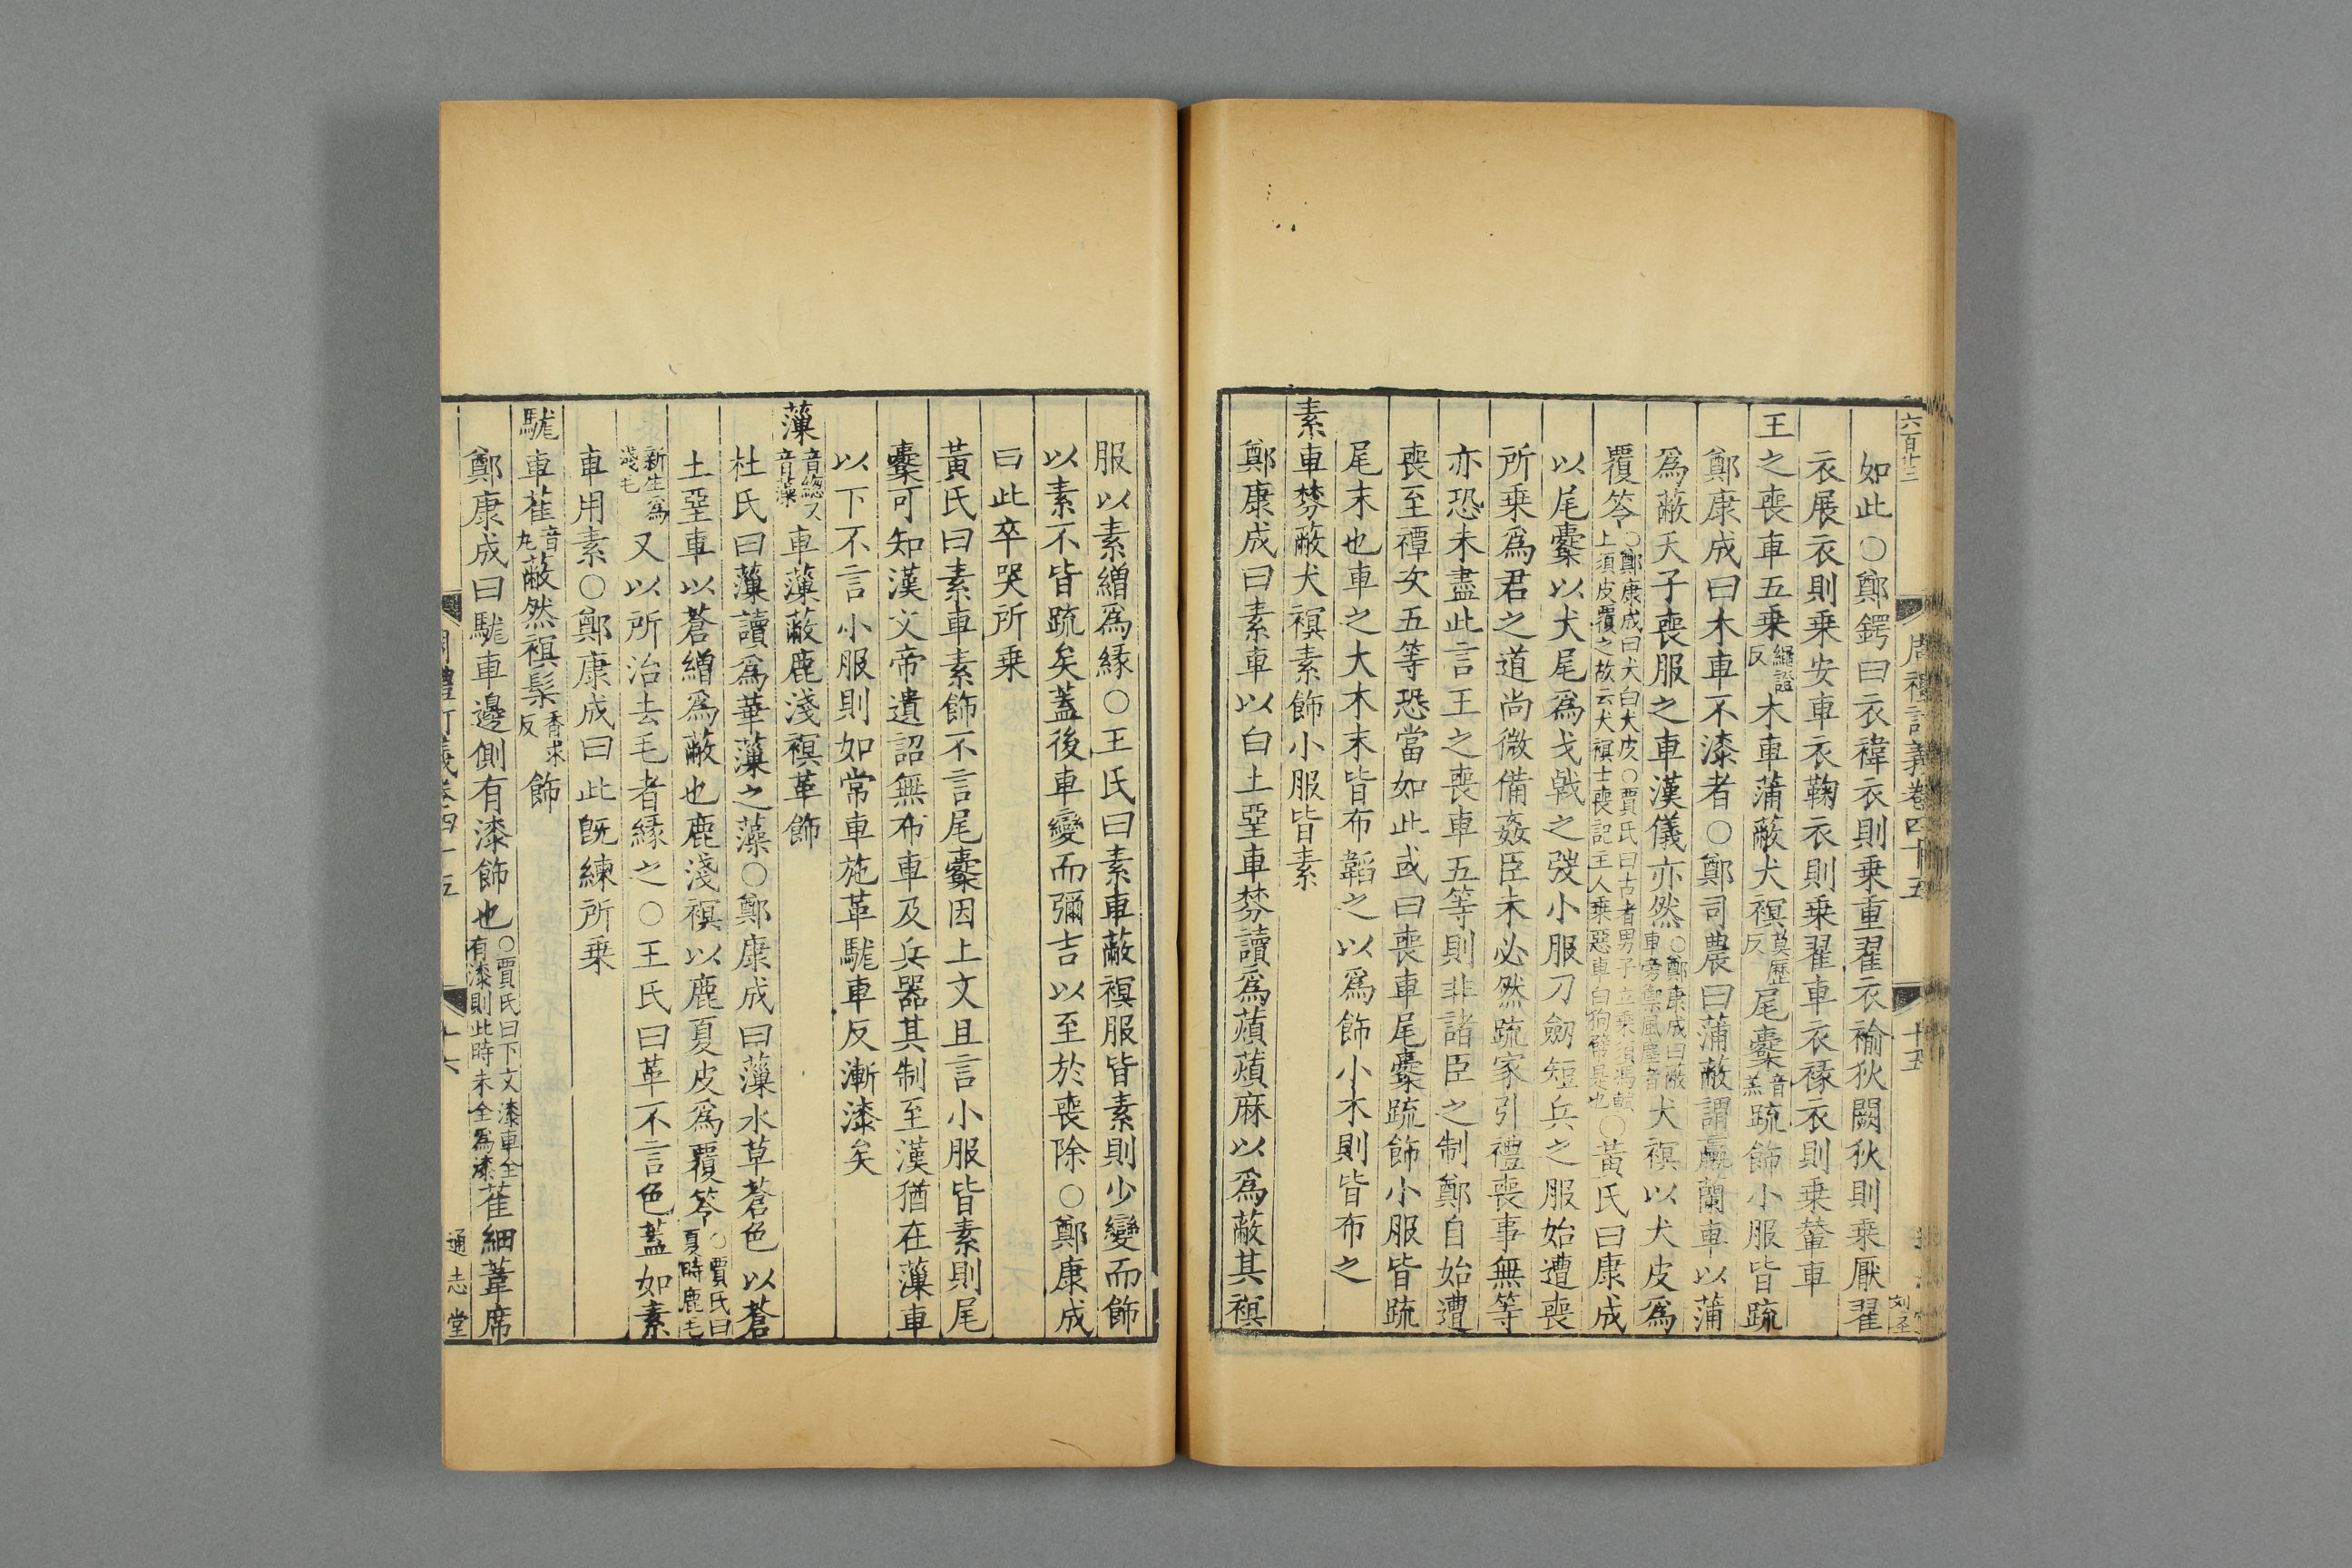 六百廿三
周禮訂義卷四十五
十五
刘圣
如此○鄭鍔曰衣褘衣則乗重翟衣褕狄闕狄則乗厭翟
衣展衣則乗安車衣鞠衣則乗翟車衣褖衣則乗輦車
王之喪車五乗繩證反木車蒲蔽犬𧜀莫歷反尾櫜音羔疏飾小服皆疏
鄭康成曰木車不漆者○鄭司農曰蒲蔽謂蠃蘭車以蒲
爲蔽天子喪服之車漢儀亦然○鄭康成曰蔽車旁禦風塵者犬𧜀以犬皮爲
覆笭○鄭康成曰犬白犬皮○賈氏曰古者男子立乘須馮軾上須皮覆之故云犬𧜀士喪記主人乘惡車白狗幦是也○黃氏曰康成
以尾櫜以犬尾爲戈戟之弢小服刀劒短兵之服始遭喪
所乗爲君之道尚微備姦臣未必然疏家引禮喪事無等
亦恐未盡此言王之喪車五等則非諸臣之制鄭自始遭
喪至禫次五等恐當如此或曰喪車尾櫜疏飾小服皆疏
尾末也車之大木末皆布韜之以爲飾小木則皆布之
素車棼蔽犬𧜀素飾小服皆素
鄭康成曰素車以白土堊車棼讀爲薠薠麻以爲蔽其𧜀
服以素繒爲緣○王氏曰素車蔽𧜀服皆素則少變而飾
以素不皆疏矣蓋後車變而彌吉以至於喪除○鄭康成
曰此卒哭所乗
黃氏曰素車素飾不言尾櫜因上文且言小服皆素則尾
櫜可知漢文帝遺詔無布車及兵器其制至漢猶在薻車
以下不言小服則如常車施革駹車反漸漆矣
薻音總又音藻車薻蔽鹿淺𧜀革飾
杜氏曰薻讀爲華薻之藻○鄭康成曰薻水草蒼色以蒼
土堊車以蒼繒爲蔽也鹿淺𧜀以鹿夏皮爲覆笭○賈氏曰夏時鹿毛
新生爲淺毛又以所治去毛者緣之○王氏曰革不言色蓋如素
車用素○鄭康成曰此旣練所乗
駹車雚音丸蔽然𧜀髹香求反飾
鄭康成曰駹車邊側有漆飾也○賈氏曰下文漆車全有漆則此時未全爲漆雚細葦席
周禮訂義卷四十五
十六
通志堂